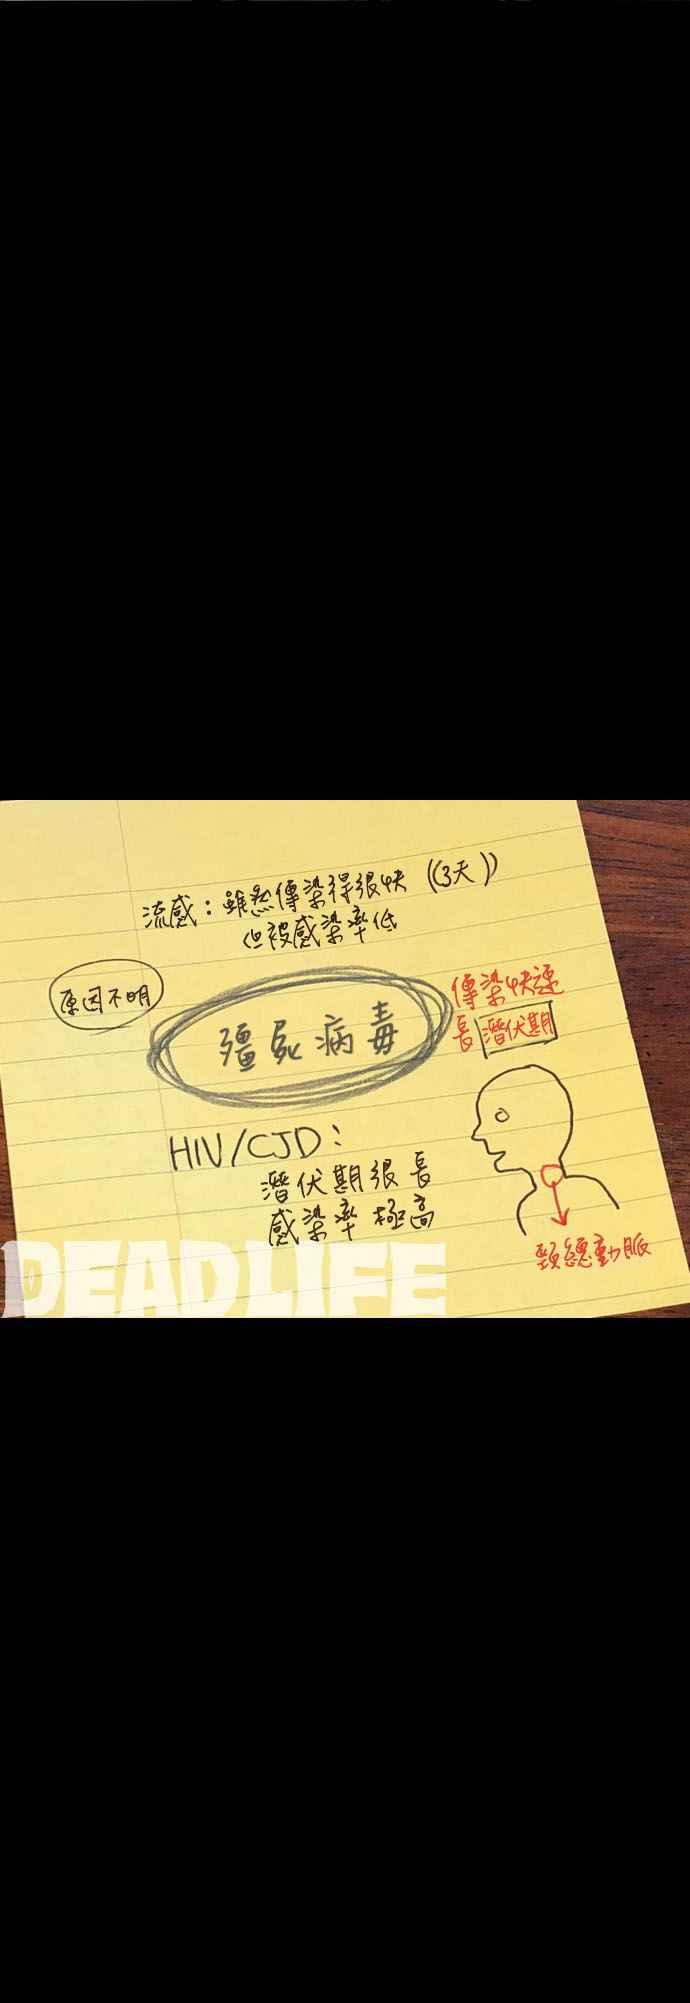 流感：雖然傳染得很快（(3天))
但被感染率低
原因不明
殭屍病毒
傳染快速
長潛伏期
HIV/CJD：
潛伏期很長
感染率極高
頸總動脈
DEADLIFE